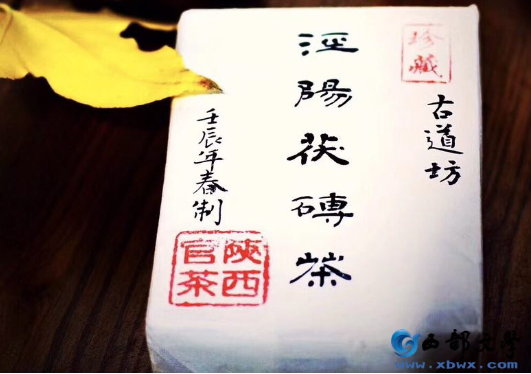 珍藏
古道坊
涇陽茯磚茶
壬辰年春制
陝西
官茶
西部文學
www.xbwx.com